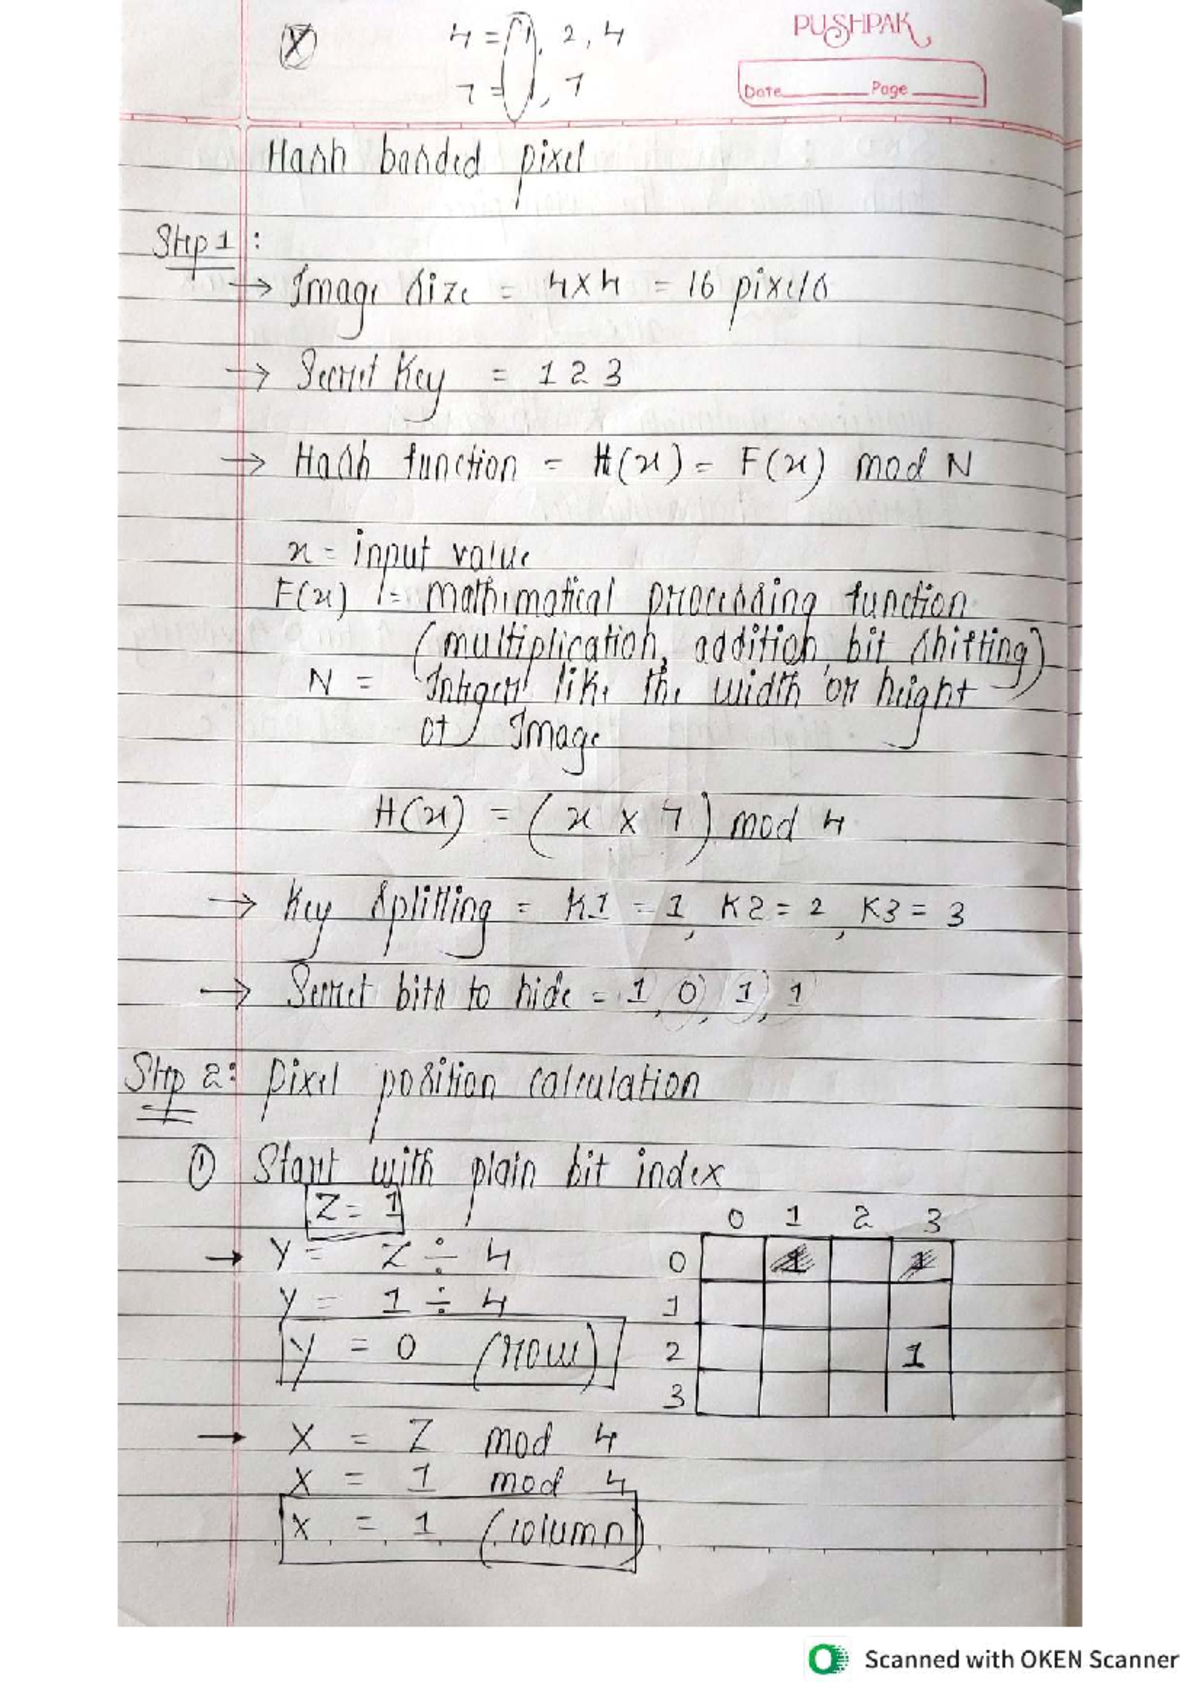 X 4 = 1, 2, 4
PUSHPAK
7 = 1, 7
Date Page
Hash basded pixel
Step 1 :
→ Image size = 4x4 = 16 pixels
→ Secret Key = 123
→ Hash function = H(x) = F(x) mod N
x = input value
F(x) = mathematical processing function
(multiplication, addition, bit shifting)
N = Integer like the width or height
of Image
H(x) = (x x 7) mod 4
→ Key splitting = K1 = 1, K2 = 2, K3 = 3
→ Secret bits to hide = 1, 0, 1, 1
Step 2: Pixel position calculation
① Start with plain bit index
Z = 1
0 1 2 3
→ Y = Z ÷ 4
0 1 1
Y = 1 ÷ 4
1
Y = 0 (row)
2 1
3
→ X = Z mod 4
X = 1 mod 4
X = 1 (column)
Scanned with OKEN Scanner